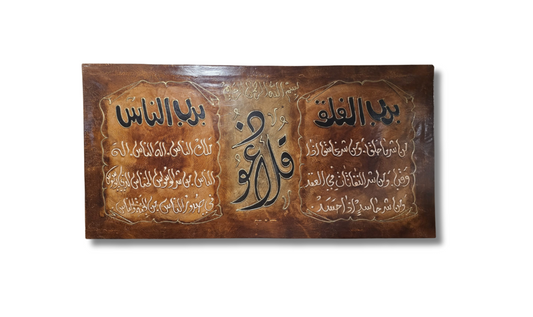 بسم الله الرحمن الرحيم
قل أعوذ
برب الفلق
من شر ما خلق. ومن شر غاسق إذا
وقب. ومن شر النفاثات في العقد
ومن شر حاسد إذا حسد
برب الناس
ملك الناس. إله الناس. إله
الناس. من شر الوسواس الخناس الذي
في صدور الناس من الجنة